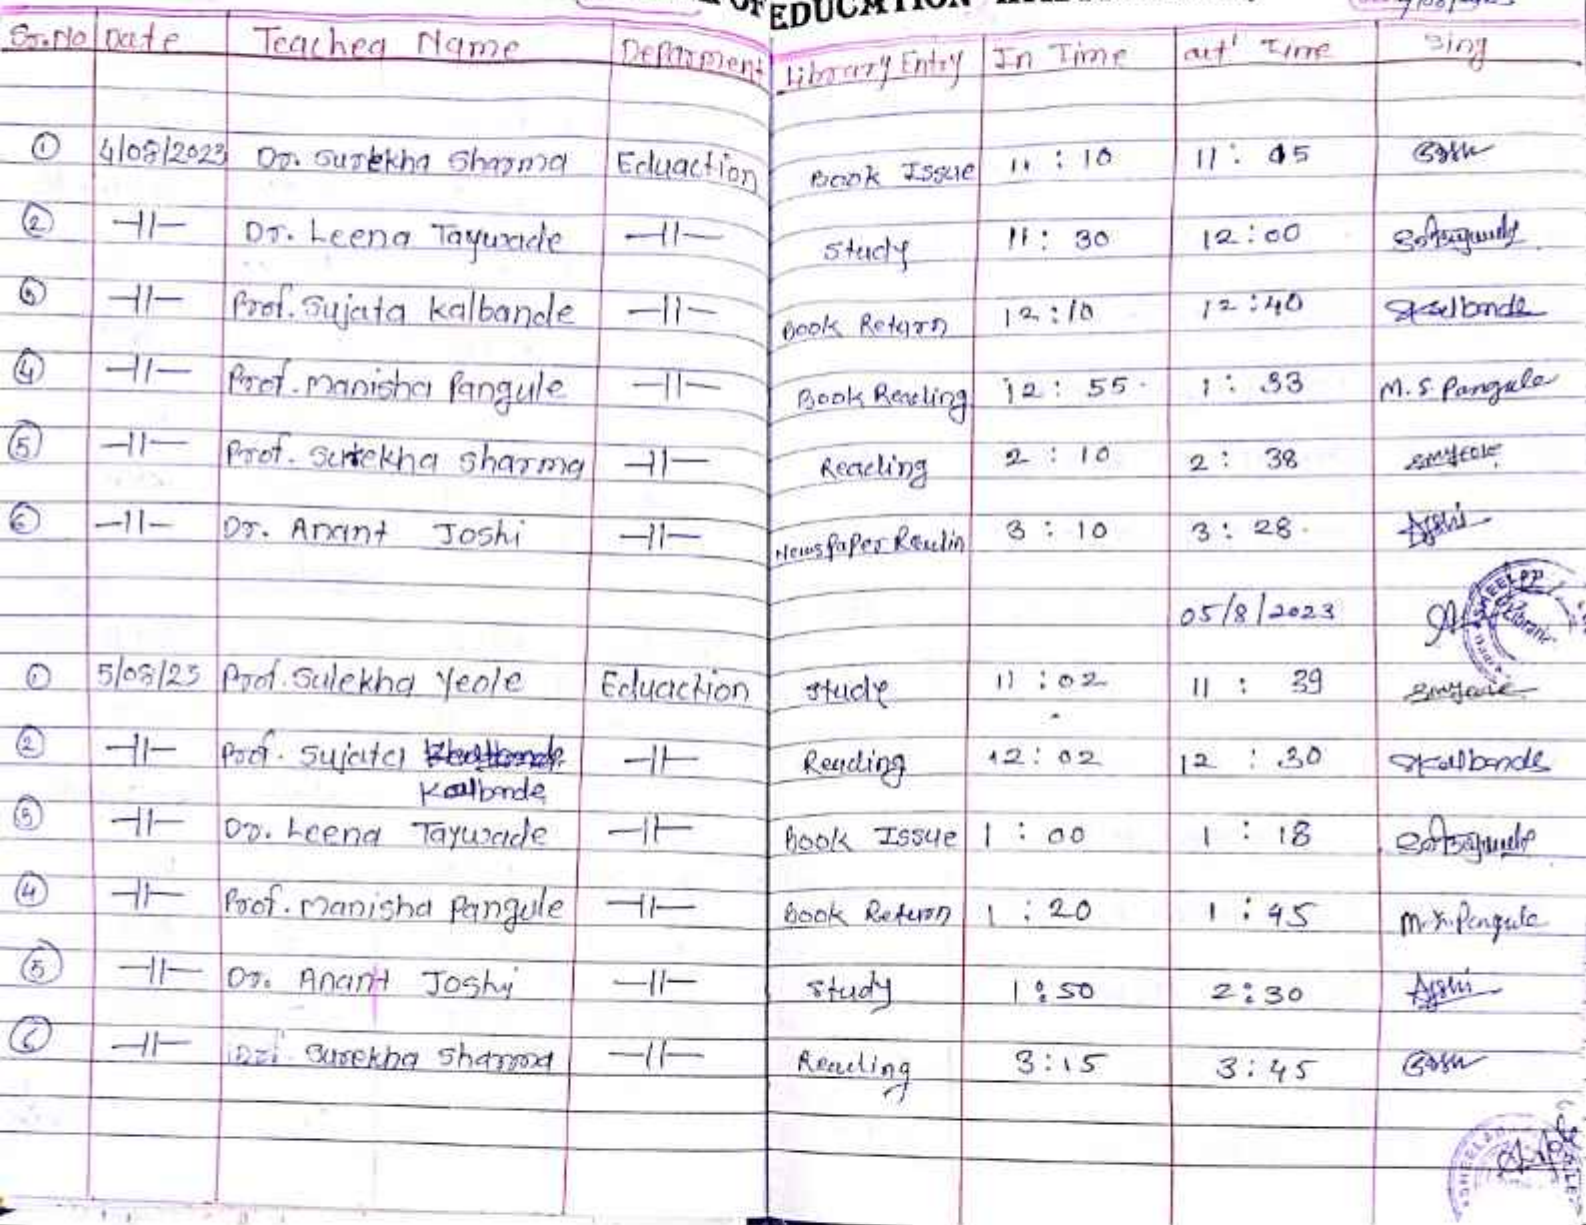 OF EDUCATION
Sr.No Date Teachea Name Deparment Library Entry In Time out' Time Sing
① 4/08/2023 Dr. Surekha Sharma Eduaction Book Issue 11 : 10 11 : 45
② —11— Dr. Leena Taywade —11— Study 11 : 30 12:00
③ —11— Prof. Sujata Kalbande —11— Book Return 12:10 12:40 Skalbande
④ —11— Prof. Manisha Pangule —11— Book Reading 12 : 55 1 : 33 M. S. Pangule
⑤ —11— Prof. Surekha Sharma —11— Reading 2 : 10 2 : 38 smyeole
⑥ —11— Dr. Anant Joshi —11— Newspaper Readin 3 : 10 3 : 28 Ajoshi
05/8/2023
① 5/08/23 Prof. Sulekha Yeole Eduaction Study 11 : 02 11 : 39 smyeole
② —11— Prof. Sujata —11— Reading 12 : 02 12 : 30 Skalbande
Kalbande
③ —11— Dr. Leena Taywade —11— Book Issue 1 : 00 1 : 18
④ —11— Prof. Manisha Pangule —11— Book Return 1 : 20 1 : 45 M.S. Pangule
⑤ —11— Dr. Anant Joshi —11— Study 1:50 2:30 Ajoshi
⑥ —11— Dr. Surekha Sharma —11— Reading 3:15 3:45